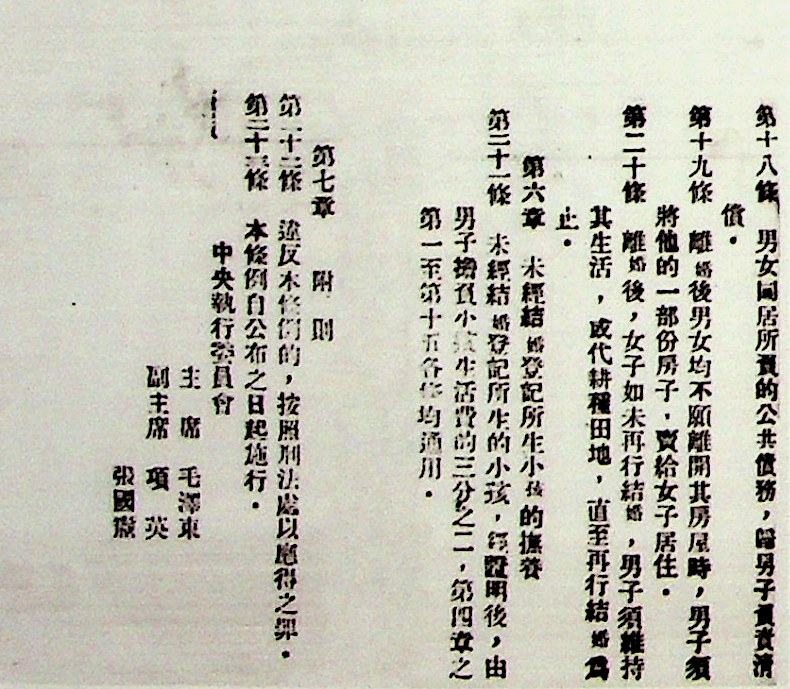 第十八條　男女同居所負的公共債務，歸男子負責清
償．
第十九條　離婚後男女均不願離開其房屋時，男子須
將他的一部份房子，賣給女子居住．
第二十條　離婚後，女子如未再行結婚，男子須維持
其生活，或代耕種田地，直至再行結婚爲
止．
第六章　未經結婚登記所生小孩的撫養
第二十一條　未經結婚登記所生的小孩，經證明後，由
男子擔負小孩生活費的三分之二，第四章之
第一至第十五各條均適用．
第七章　附　則
第二十二條　違反本條例的，按照刑法處以應得之罪．
第二十三條　本條例自公布之日起施行．
中央執行委員會
主　席　毛澤東
副主席　項　英
張國燾